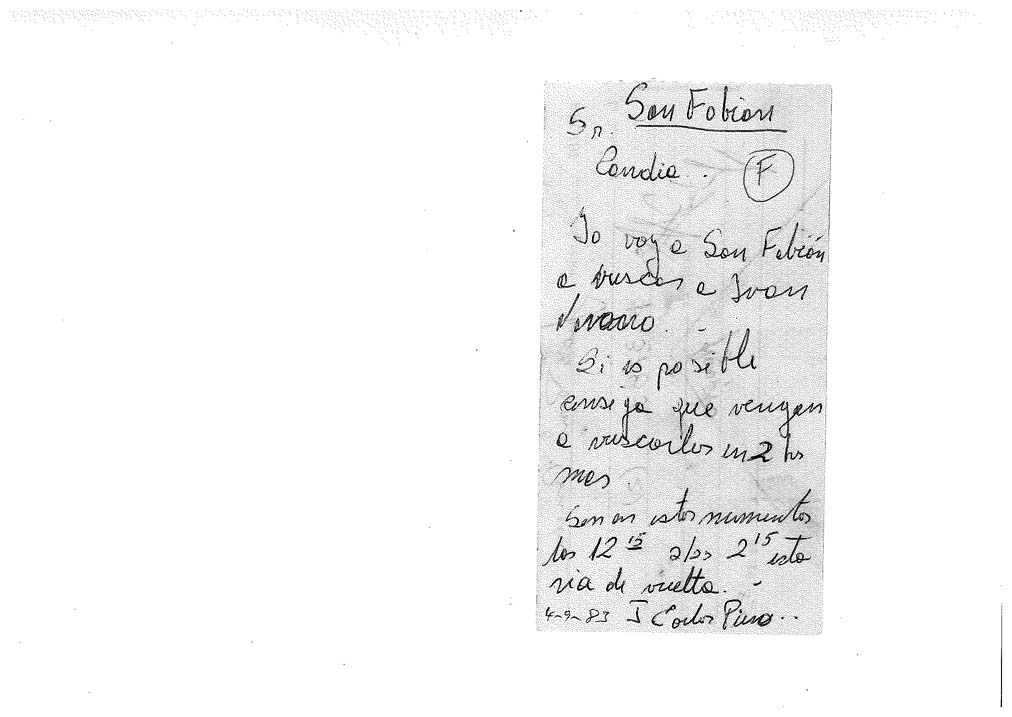 San Fabian
Sr.
Candia..
F
Yo voy a San Fabián
a vuscar a Ivan
Si es posible
consiga que vengan
a vuscarlos en 2 hs
mas.
Son en estos mumentos
las 12 15 a las 2 15 esta
ria de vuelta. -
4-9-83 J Carlos Pino..